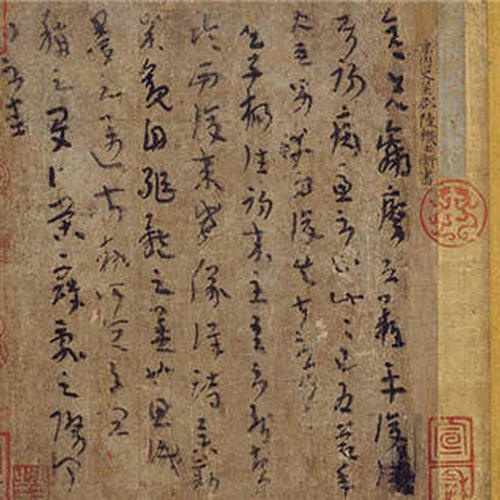 内史吳郡陸機士衡書
彥先羸瘵恐難平復
初病慮不止此此已為慶承
使唯男幸為復失前憂耳
吳子楊往初來主吾不能盡
臨西復來威儀詳跱舉動
成觀自軀體之美也思識
量之邁前執所恒有宜
稱之夏伯榮寇亂之際聞
問不悉